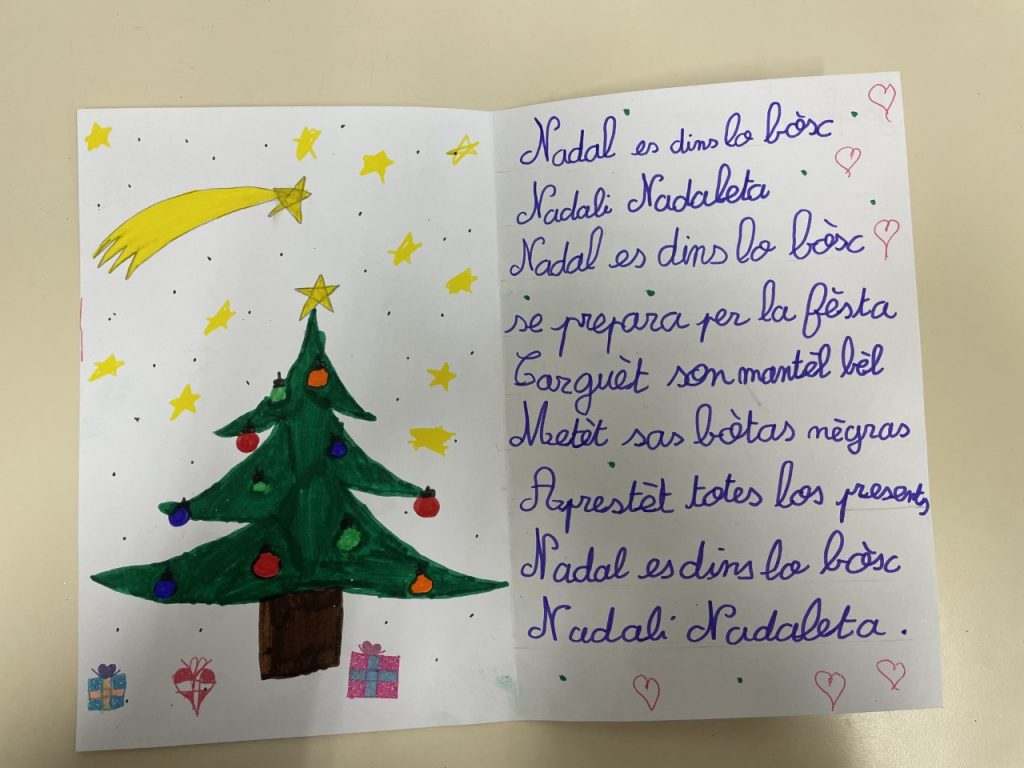 Nadal es dins lo bòsc
Nadali Nadaleta
Nadal es dins lo bòsc
se prepara per la fèsta
Carguèt son mantèl bèl
Metèt sas bòtas nègras
Aprestèt totes los presents
Nadal es dins lo bòsc
Nadali Nadaleta.